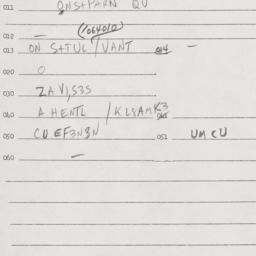 011 QNS+PARN QU
(1064010)
012 —
013 ON S+TUL / VANT 014 —
020 O
030 ZAVI,S3S
040 A HENTL / KLSAMK3
050 CU EF3N3N 051 UM CU
060 —